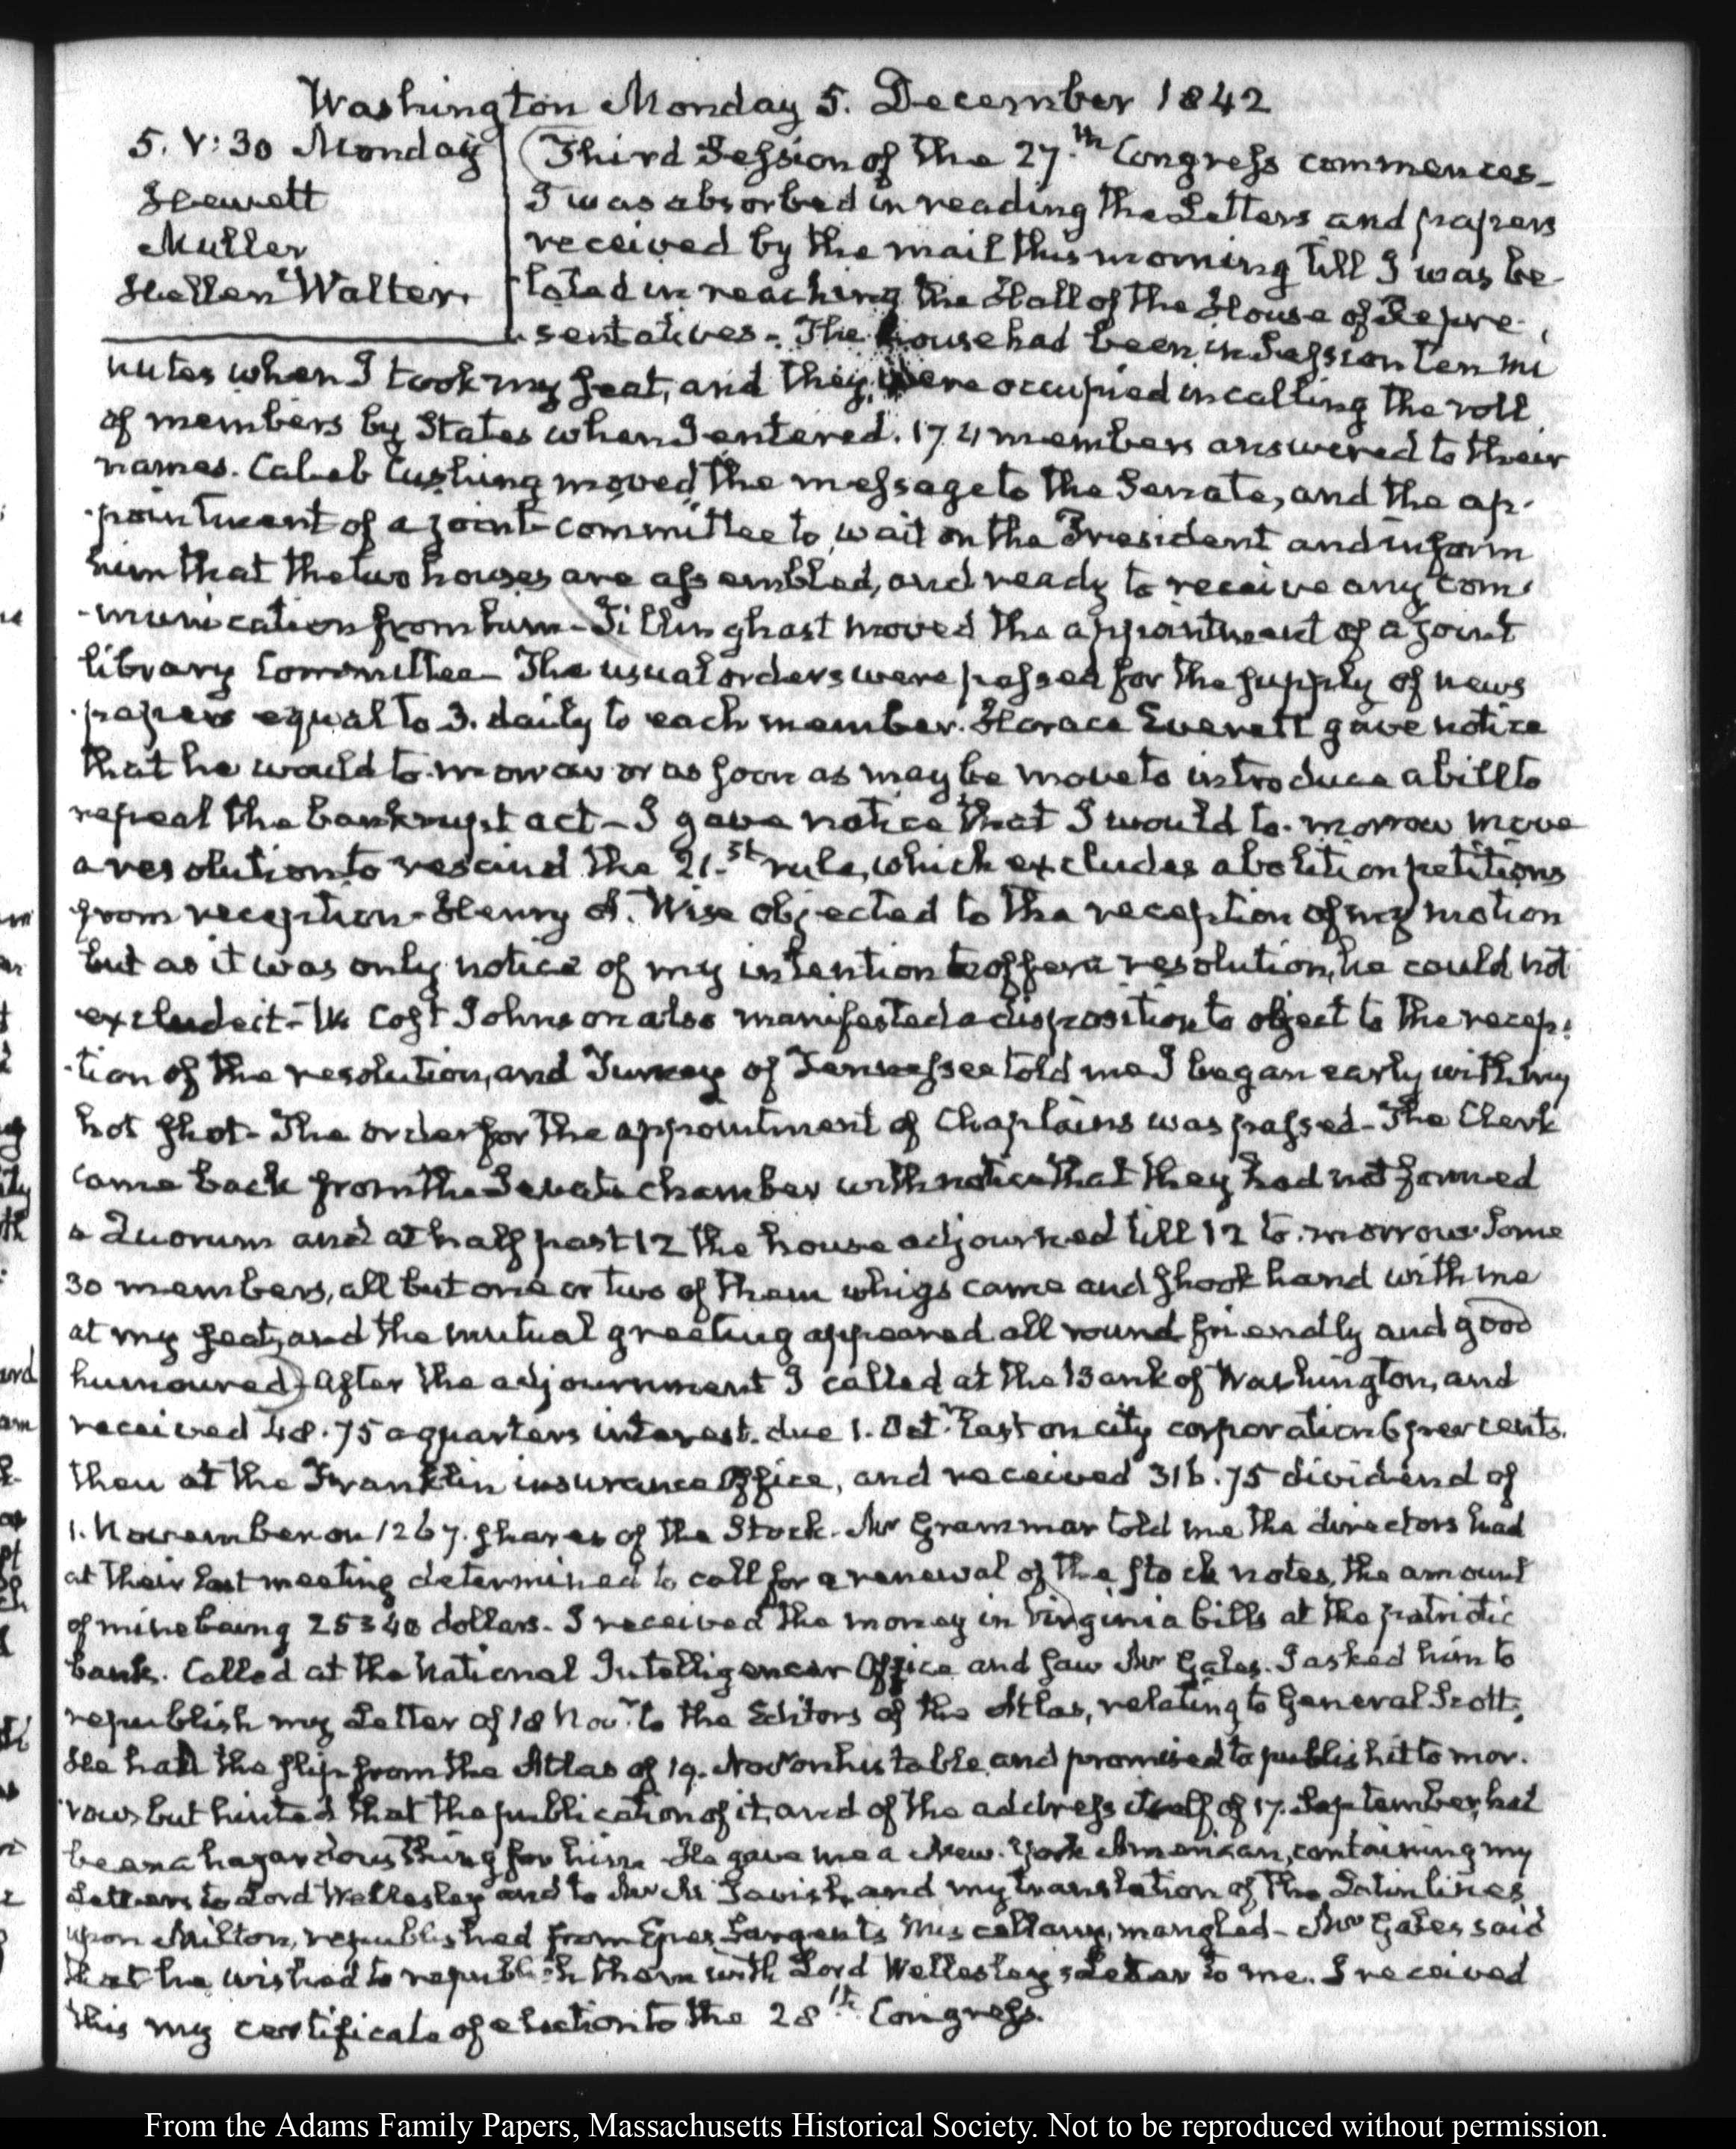 Washington Monday 5. December 1842
5. V:30 Monday
Jewett
Muller
Hellen Walter.
Third Session of the 27.th Congress commences-
I was absorbed in reading the Letters and papers
received by the mail this morning till I was be-
lated in reaching the Hall of the House of Repre-
sentatives- The house had been in Session ten mi
nutes when I took my seat, and they were occupied in calling the roll
of members by States when I entered. 174 members answered to their
names. Caleb Cushing moved the message to the Senate, and the ap-
-pointment of a joint committee to wait on the President and inform
him that the two houses are assembled, and ready to receive any com-
-munication from him- Tillinghast moved the appointment of a joint
library Committee- The usual orders were passed for the supply of news
-papers equal to 3. daily to each member. Horace Everett gave notice
that he would to-morrow or as soon as may be move to introduce a bill to
repeal the bankrupt act- I gave notice that I would to-morrow move
a resolution to rescind the 21.st rule, which excludes abolition petitions
from reception- Henry A. Wise objected to the reception of my motion
but as it was only notice of my intention to offer a resolution, he could not
exclude it- Wm Cost Johnson also manifested a disposition to object to the recep-
-tion of the resolution, and Turney of Tennessee told me I began early with my
hot shot- The order for the appointment of Chaplains was passed- The Clerk
came back from the Senate chamber with notice that they had not formed
a Quorum and at half past 12 the house adjourned till 12 to-morrow. Some
30 members, all but one or two of them whigs came and shook hand with me
at my seat, and the mutual greeting appeared all round friendly and good
humoured) After the adjournment I called at the Bank of Washington, and
received 48.75 a quarters interest. due 1. Octr. last on city corporation 6 per cents.
then at the Franklin insurance Office, and received 316.75 dividend of
1. November on 1267. shares of the Stock. Mr Grammar told me the directors had
at their last meeting determined to call for a renewal of the stock notes, the amount
of mine being 25340 dollars- I received the money in Virginia bills at the patriotic
bank. Called at the National Intelligencer Office and saw Mr Gales. I asked him to
republish my Letter of 18 Novr. to the Editors of the Atlas, relating to General Scott.
He had the slip from the Atlas of 19. Novr on his table and promised to publish it to mor-
row, but hinted that the publication of it, and of the address itself of 17. September, had
been a hazardous thing for him He gave me a New-York American, containing my
Letters to Lord Wellesley and to Mr Mc Tavish, and my translation of the Latin lines
upon Milton, republished from Epes Sargent's Miscellany, mangled- Mr Gales said
that he wished to republish them with Lord Wellesley's Letter to me. I received
this my certificate of election to the 28th Congress.
From the Adams Family Papers, Massachusetts Historical Society. Not to be reproduced without permission.